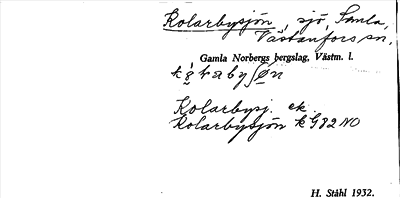 Kolarbysjön, sjö, Semla,
Västanfors sn.
Gamla Norbergs bergslag, Västm. l.
Kolarbysj. ek.
Kolarbysjön k G82 NO
H. Ståhl 1932.